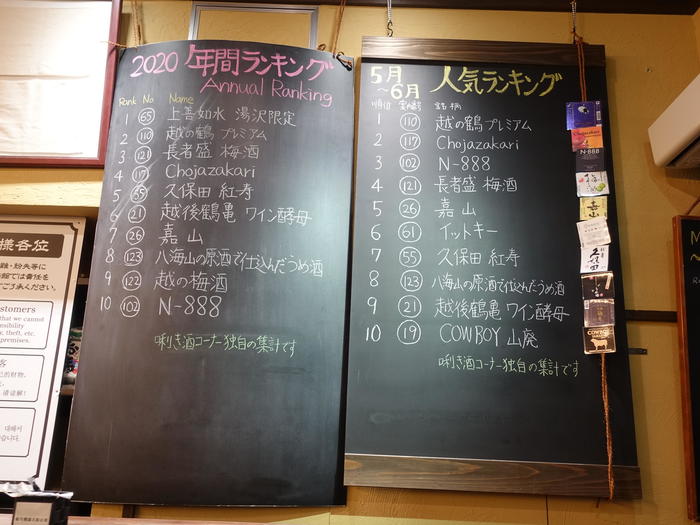 2020 年間ランキング
Annual Ranking
Rank No Name
1 65 上善如水 湯沢限定
2 110 越の鶴 プレミアム
3 121 長者盛 梅酒
4 117 Chojazakari
5 55 久保田 紅寿
6 21 越後鶴亀 ワイン酵母
7 26 嘉山
8 123 八海山の原酒で仕込んだうめ酒
9 122 越の梅酒
10 102 N-888
唎き酒コーナー独自の集計です
5月
～6月 人気ランキング
順位 銘柄
1 110 越の鶴 プレミアム
2 117 Chojazakari
3 102 N-888
4 121 長者盛 梅酒
5 26 嘉山
6 61 イットキー
7 55 久保田 紅寿
8 123 八海山の原酒で仕込んだうめ酒
9 21 越後鶴亀 ワイン酵母
10 19 COWBOY 山廃
唎き酒コーナー独自の集計です
様各位
雑・紛失等に
館では責任を
ご了承ください。
stomers
that we cannot
onsibility
y, theft, etc.
premises.
Chojazakari
N-888
梅
嘉山
久保田
COWBOY